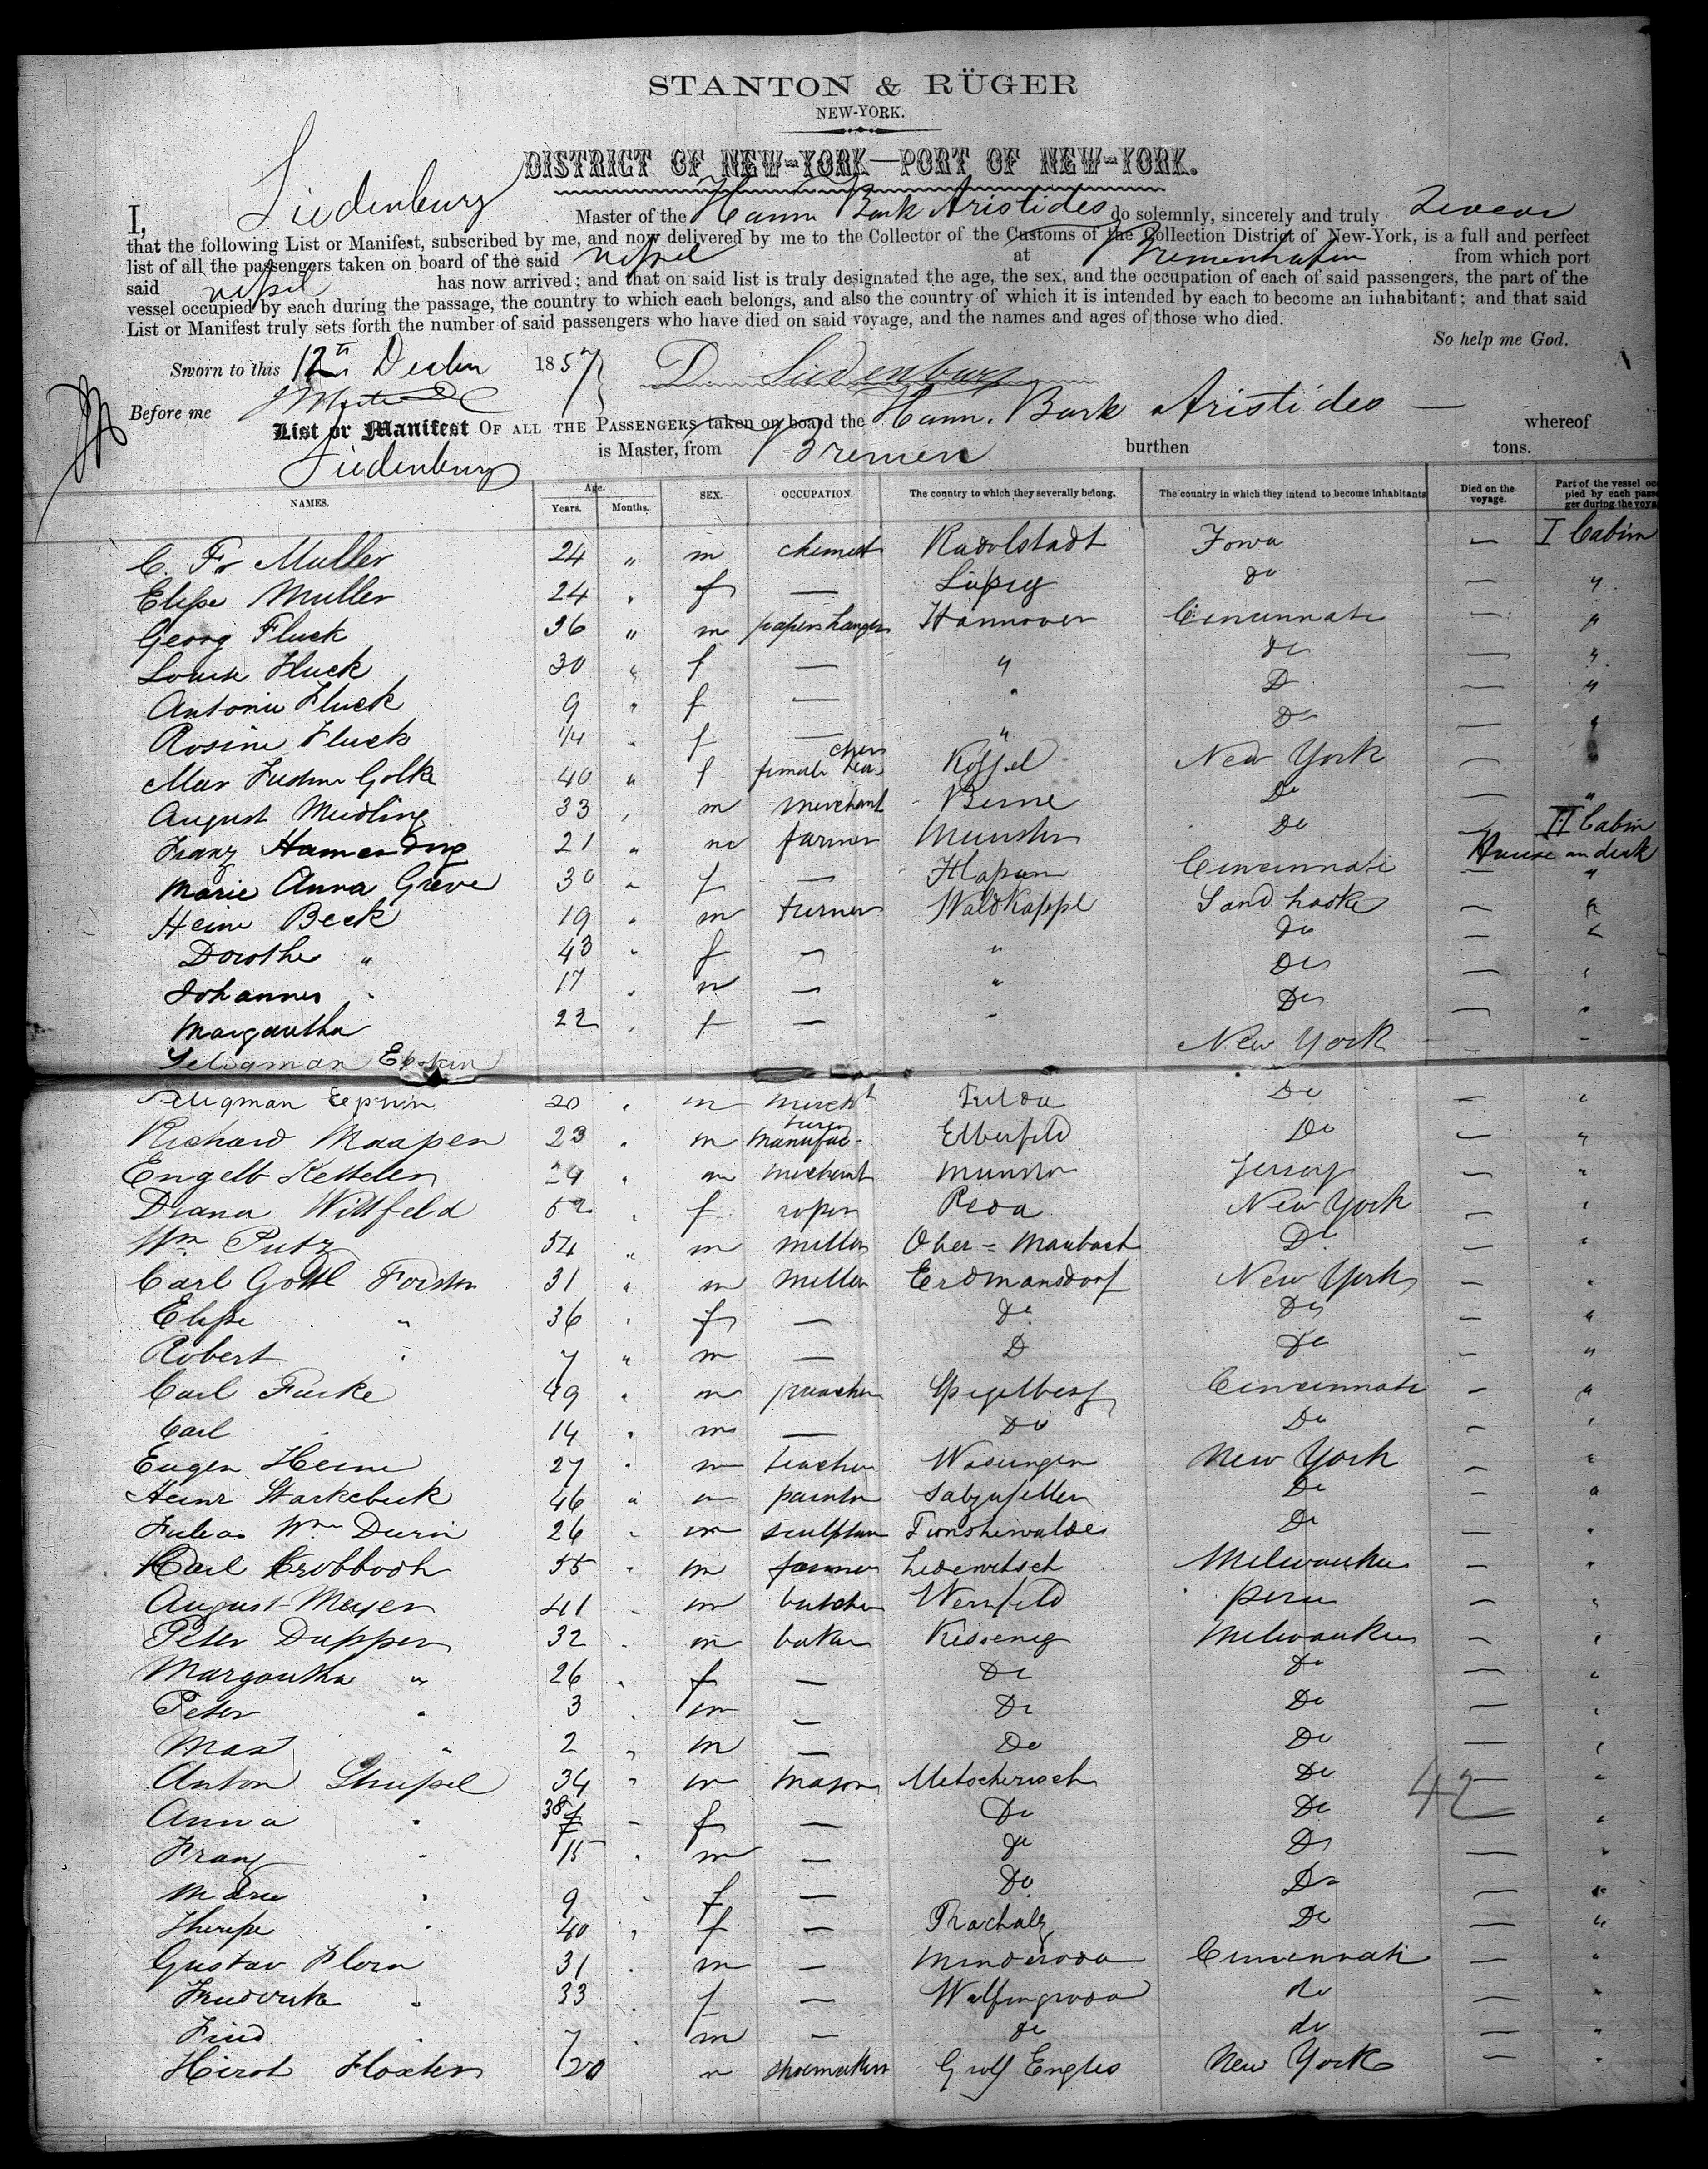 STANTON & RÜGER
NEW-YORK.
DISTRICT OF NEW-YORK—PORT OF NEW-YORK.
I, Siedenburg Master of the Hann Bark Aristides do solemnly, sincerely and truly swear
that the following List or Manifest, subscribed by me, and now delivered by me to the Collector of the Customs of the Collection District of New-York, is a full and perfect
list of all the passengers taken on board of the said vessel at Bremenhafen from which port
said vessel has now arrived; and that on said list is truly designated the age, the sex, and the occupation of each of said passengers, the part of the
vessel occupied by each during the passage, the country to which each belongs, and also the country of which it is intended by each to become an inhabitant; and that said
List or Manifest truly sets forth the number of said passengers who have died on said voyage, and the names and ages of those who died.
So help me God.
Sworn to this 12th Decbr 1857 D. Siedenburg
Before me
List or Manifest OF ALL THE PASSENGERS taken on board the Hann. Bark Aristides — whereof
Siedenburg is Master, from Bremen burthen tons.
NAMES. Age. Years. Months. SEX. OCCUPATION. The country to which they severally belong. The country in which they intend to become inhabitants Died on the voyage. Part of the vessel
C. Fr Muller 24 " m chemist Rudolstadt Iowa — I Cabin
Elisse Muller 24 " f — Leipzig do — "
Georg Fluck 36 " m papershanger Hannover Cincinnati — "
Louise Fluck 30 " f — " do — "
Antonie Fluck 9 " f — " D — "
Rosine Fluck 1/4 " f — " Do — "
40 " f female teachers New York —
August 33 " m merchant Berne Do — "
Franz 21 " m farmer Munster do — II Cabin
House on deck
Marie Anna Greve 30 " f — Cincinnati — "
Heinr Beck 19 " m turner Waldkappl — "
Dorothe " 43 " f — " do — "
Johannes " 17 " m — " Do — "
Margaretha 22 " f — " Do — "
Seligman New York —
Seligman 20 " m mercht Fulda Do — "
Richard Maassen 23 " m manufacturer Elberfeld Do — "
Engelb Ketteler 24 " m merchant Munster Jersey — "
Diana Wittfeld 52 " f Reda New York — "
Wm Putz 54 " m miller Ober=Maubach Do — "
Carl Gottl Forster 31 " m miller Erdmansdorf New York — "
Elisse " 36 " f — do Do — "
Robert " 7 " m — D Do — "
Carl 49 " m preacher Spigelberg Cincinnati — "
Carl " 14 " m — Do Do — "
Eugen Heim 27 " m teacher Wasungen New York — "
Heinr Starkebuck 46 " m painter Salzufellen Do — "
Julius Wm 26 " m sculpteur Do — "
Carl 55 " m farmer Milwaukee — "
August Meyer 41 " m butcher Wernfeld peru — "
Peter Dupper 32 " m baker Milwaukee — "
Margaretha " 26 " f — Do do — "
Peter " 3 " m — Do Do — "
Max " 2 " m — Do Do — "
Anton 34 " m mason Metscherisch Do — "
42
Anna " 38 " f — Do Do — "
Franz " 15 " m — do Do — "
Marie " 9 " f — Do Do — "
Therese " 40 " f — Do — "
Gustav Florn 31 " m — Minderoda Cincinnati — "
Friedrike " 33 " f — Wulfingroda do — "
Fried " 7 " m — do do — "
20 m shoemaker New York — "